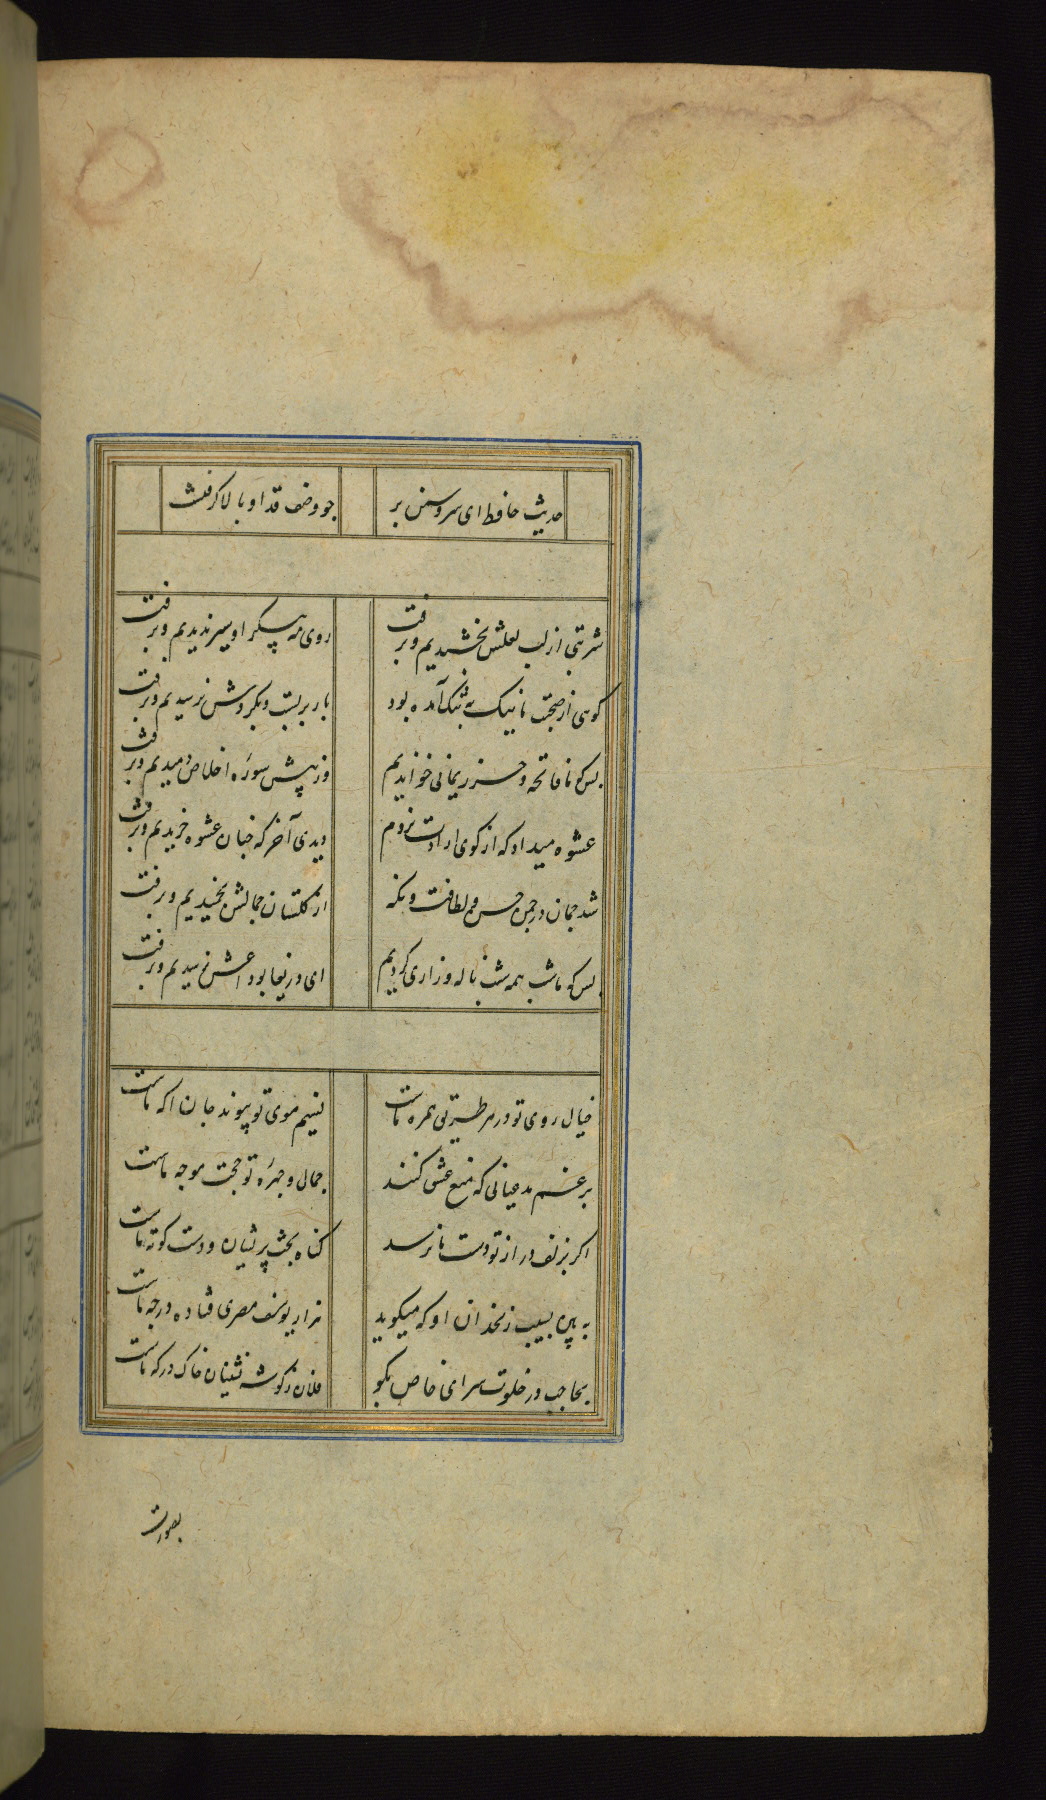 حدیث حافظ ای سرو سمن بر
چو وصف قد او بالا گرفتست
شربتی از لب لعلش نچشیدیم و برفت
روی مه پیکر او سیر ندیدیم و برفت
گوئی از صحبت ما نیک به تنگ آمده بود
بار بربست و بگردش نرسیدیم و برفت
بس که ما فاتحه و حرز یمانی خواندیم
وز پیش سورۀ اخلاص دمیدیم و برفت
عشوه میداد که از کوی ارادت نروم
دیدی آخر که چنان عشوه خریدیم و برفت
شد چمان در چمن حسن و لطافت و
از گلستان جمالش نچیدیم و برفت
بس که ما شب همه شب ناله و زاری کردیم
ای دریغا بوداعش نرسیدیم و برفت
خیال روی تو در هر طریق همره ماست
نسیم موی تو پیوند جان اکه ماست
برغم مدعیانی که منع عشق کنند
جمال و چهرۀ تو حجت موجه ماست
اگر بزلف دراز تو دست ما نرسد
گناه بخت پریشان و دست کوته ماست
به بین سیب زنخدان او که میگوید
هزار یوسف مصری فتاده در چه ماست
بحاجب در خلوت سرای خاص بگو
فلان ز گوشه نشینان خاک درکه ماست
بصورت